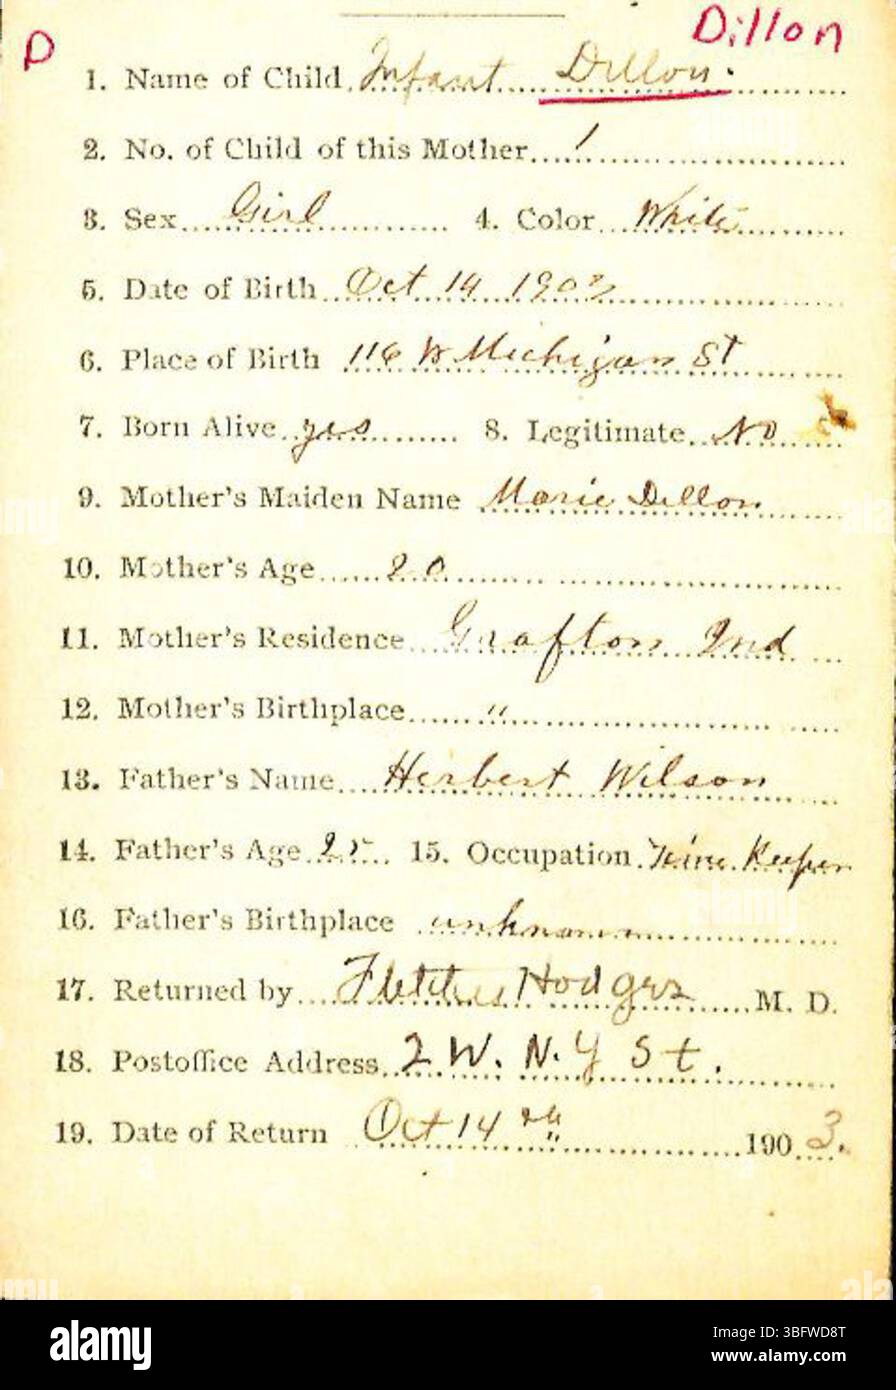 D Dillon
1. Name of Child Infant Dillon.
2. No. of Child of this Mother 1
3. Sex Girl 4. Color White
5. Date of Birth Oct 14 190
6. Place of Birth 116 W Michigan St
7. Born Alive yes 8. Legitimate No
9. Mother's Maiden Name Marie Dillon
10. Mother's Age 20
11. Mother's Residence Grafton Ind
12. Mother's Birthplace "
13. Father's Name Herbert Wilson
14. Father's Age 25 15. Occupation Time Keeper
16. Father's Birthplace unknown
17. Returned by Fletcher Hodges M. D.
18. Postoffice Address 2 W. N.Y St.
19. Date of Return Oct 14 1903.
alamy
Image ID: 3BFWD8T
www.alamy.com